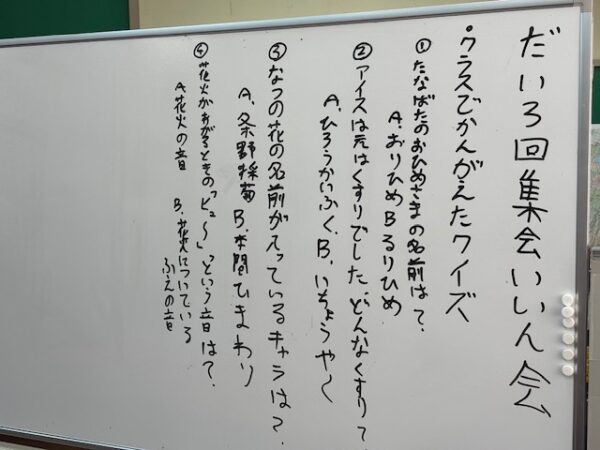 だい3回集会いいん会
・クラスでかんがえたクイズ
①たなばたのおひめさまの名前は?
A.おりひめ B るりひめ
②アイスは元はくすりでした。どんなくすり?
A.ひろうかいふく B.いちょうやく
③なつの花の名前が入っているキャラは?
A.条野採菊 B.本間ひまわり
④花火があがるときの「ピュ〜」っという音は?
A.花火の音 B.花火についている
ふえの音